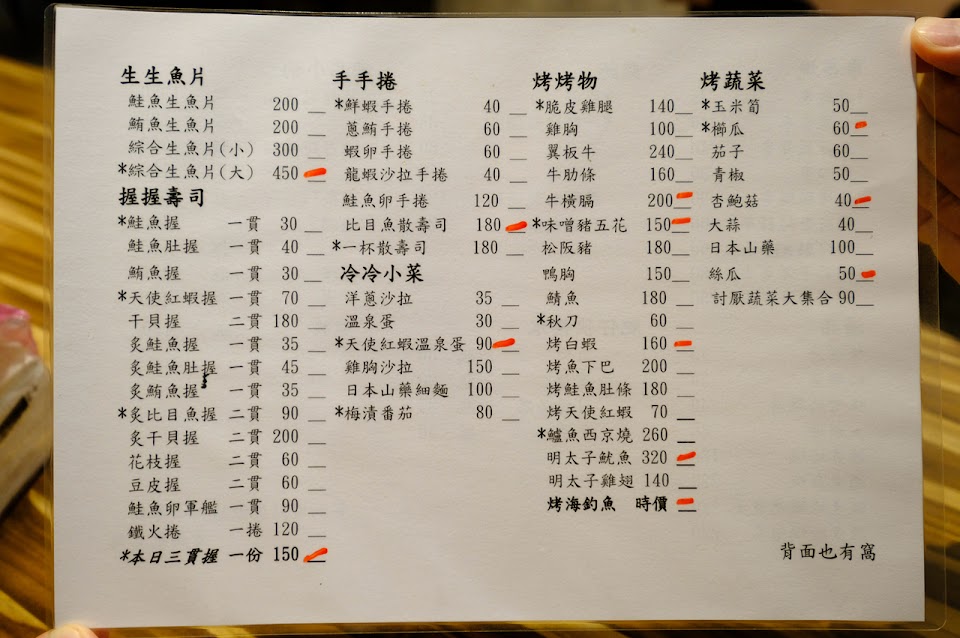 生生魚片
鮭魚生魚片 200__
鮪魚生魚片 200__
綜合生魚片(小) 300__
*綜合生魚片(大) 450__
握握壽司
*鮭魚握 一貫 30__
鮭魚肚握 一貫 40__
鮪魚握 一貫 30__
*天使紅蝦握 一貫 70__
干貝握 二貫 180__
炙鮭魚握 一貫 35__
炙鮭魚肚握 一貫 45__
炙鮪魚握 一貫 35__
*炙比目魚握 二貫 90__
炙干貝握 二貫 200__
花枝握 二貫 60__
豆皮握 二貫 60__
鮭魚卵軍艦 一貫 90__
鐵火捲 一捲 120__
*本日三貫握 一份 150__
手手捲
*鮮蝦手捲 40__
蔥鮪手捲 60__
蝦卵手捲 60__
龍蝦沙拉手捲 40__
鮭魚卵手捲 120__
比目魚散壽司 180__
*一杯散壽司 180__
冷冷小菜
洋蔥沙拉 35__
溫泉蛋 30__
*天使紅蝦溫泉蛋 90__
雞胸沙拉 150__
日本山藥細麵 100__
*梅漬番茄 80__
烤烤物
*脆皮雞腿 140__
雞胸 100__
翼板牛 240__
牛肋條 160__
牛橫膈 200__
*味噌豬五花 150__
松阪豬 180__
鴨胸 150__
鯖魚 180__
*秋刀 60__
烤白蝦 160__
烤魚下巴 200__
烤鮭魚肚條 180__
烤天使紅蝦 70__
*鱸魚西京燒 260__
明太子魷魚 320__
明太子雞翅 140__
烤海釣魚 時價__
烤蔬菜
*玉米筍 50__
*櫛瓜 60__
茄子 60__
青椒 50__
杏鮑菇 40__
大蒜 40__
日本山藥 100__
絲瓜 50__
討厭蔬菜大集合 90__
背面也有窩